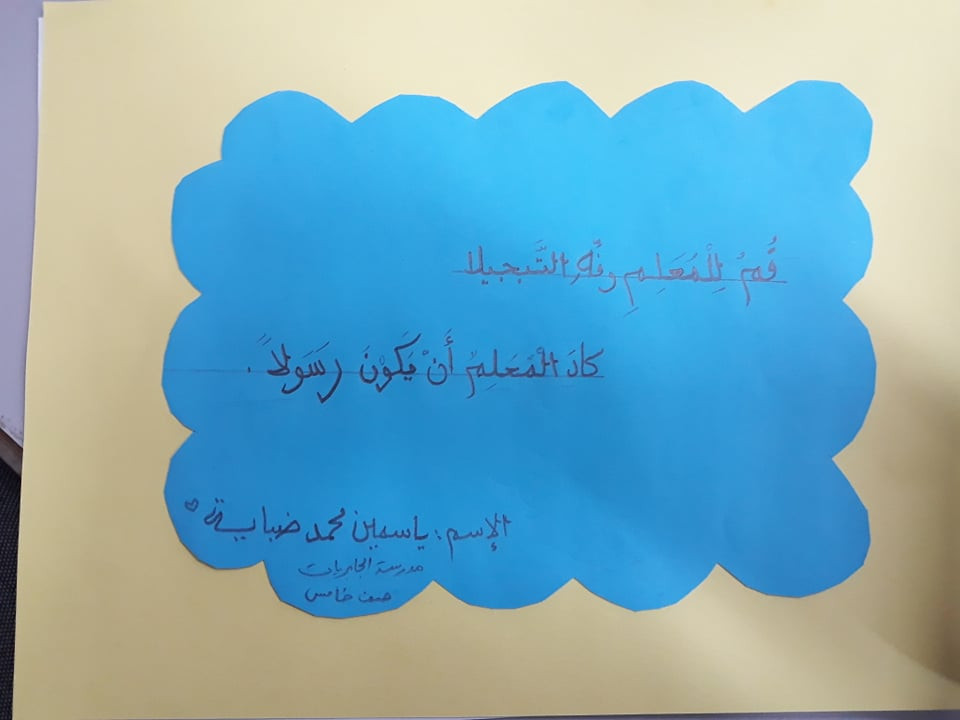 قُمْ لِلْمُعَلِمِ وفِّهِ التَّبجيلا
كادَ الْمَعَلِمُ أَنْ يَكَوْنَ رسَولاً.
الإسم: ياسمين محمد ضبابية
مدرسة الجاريات
صف خامس